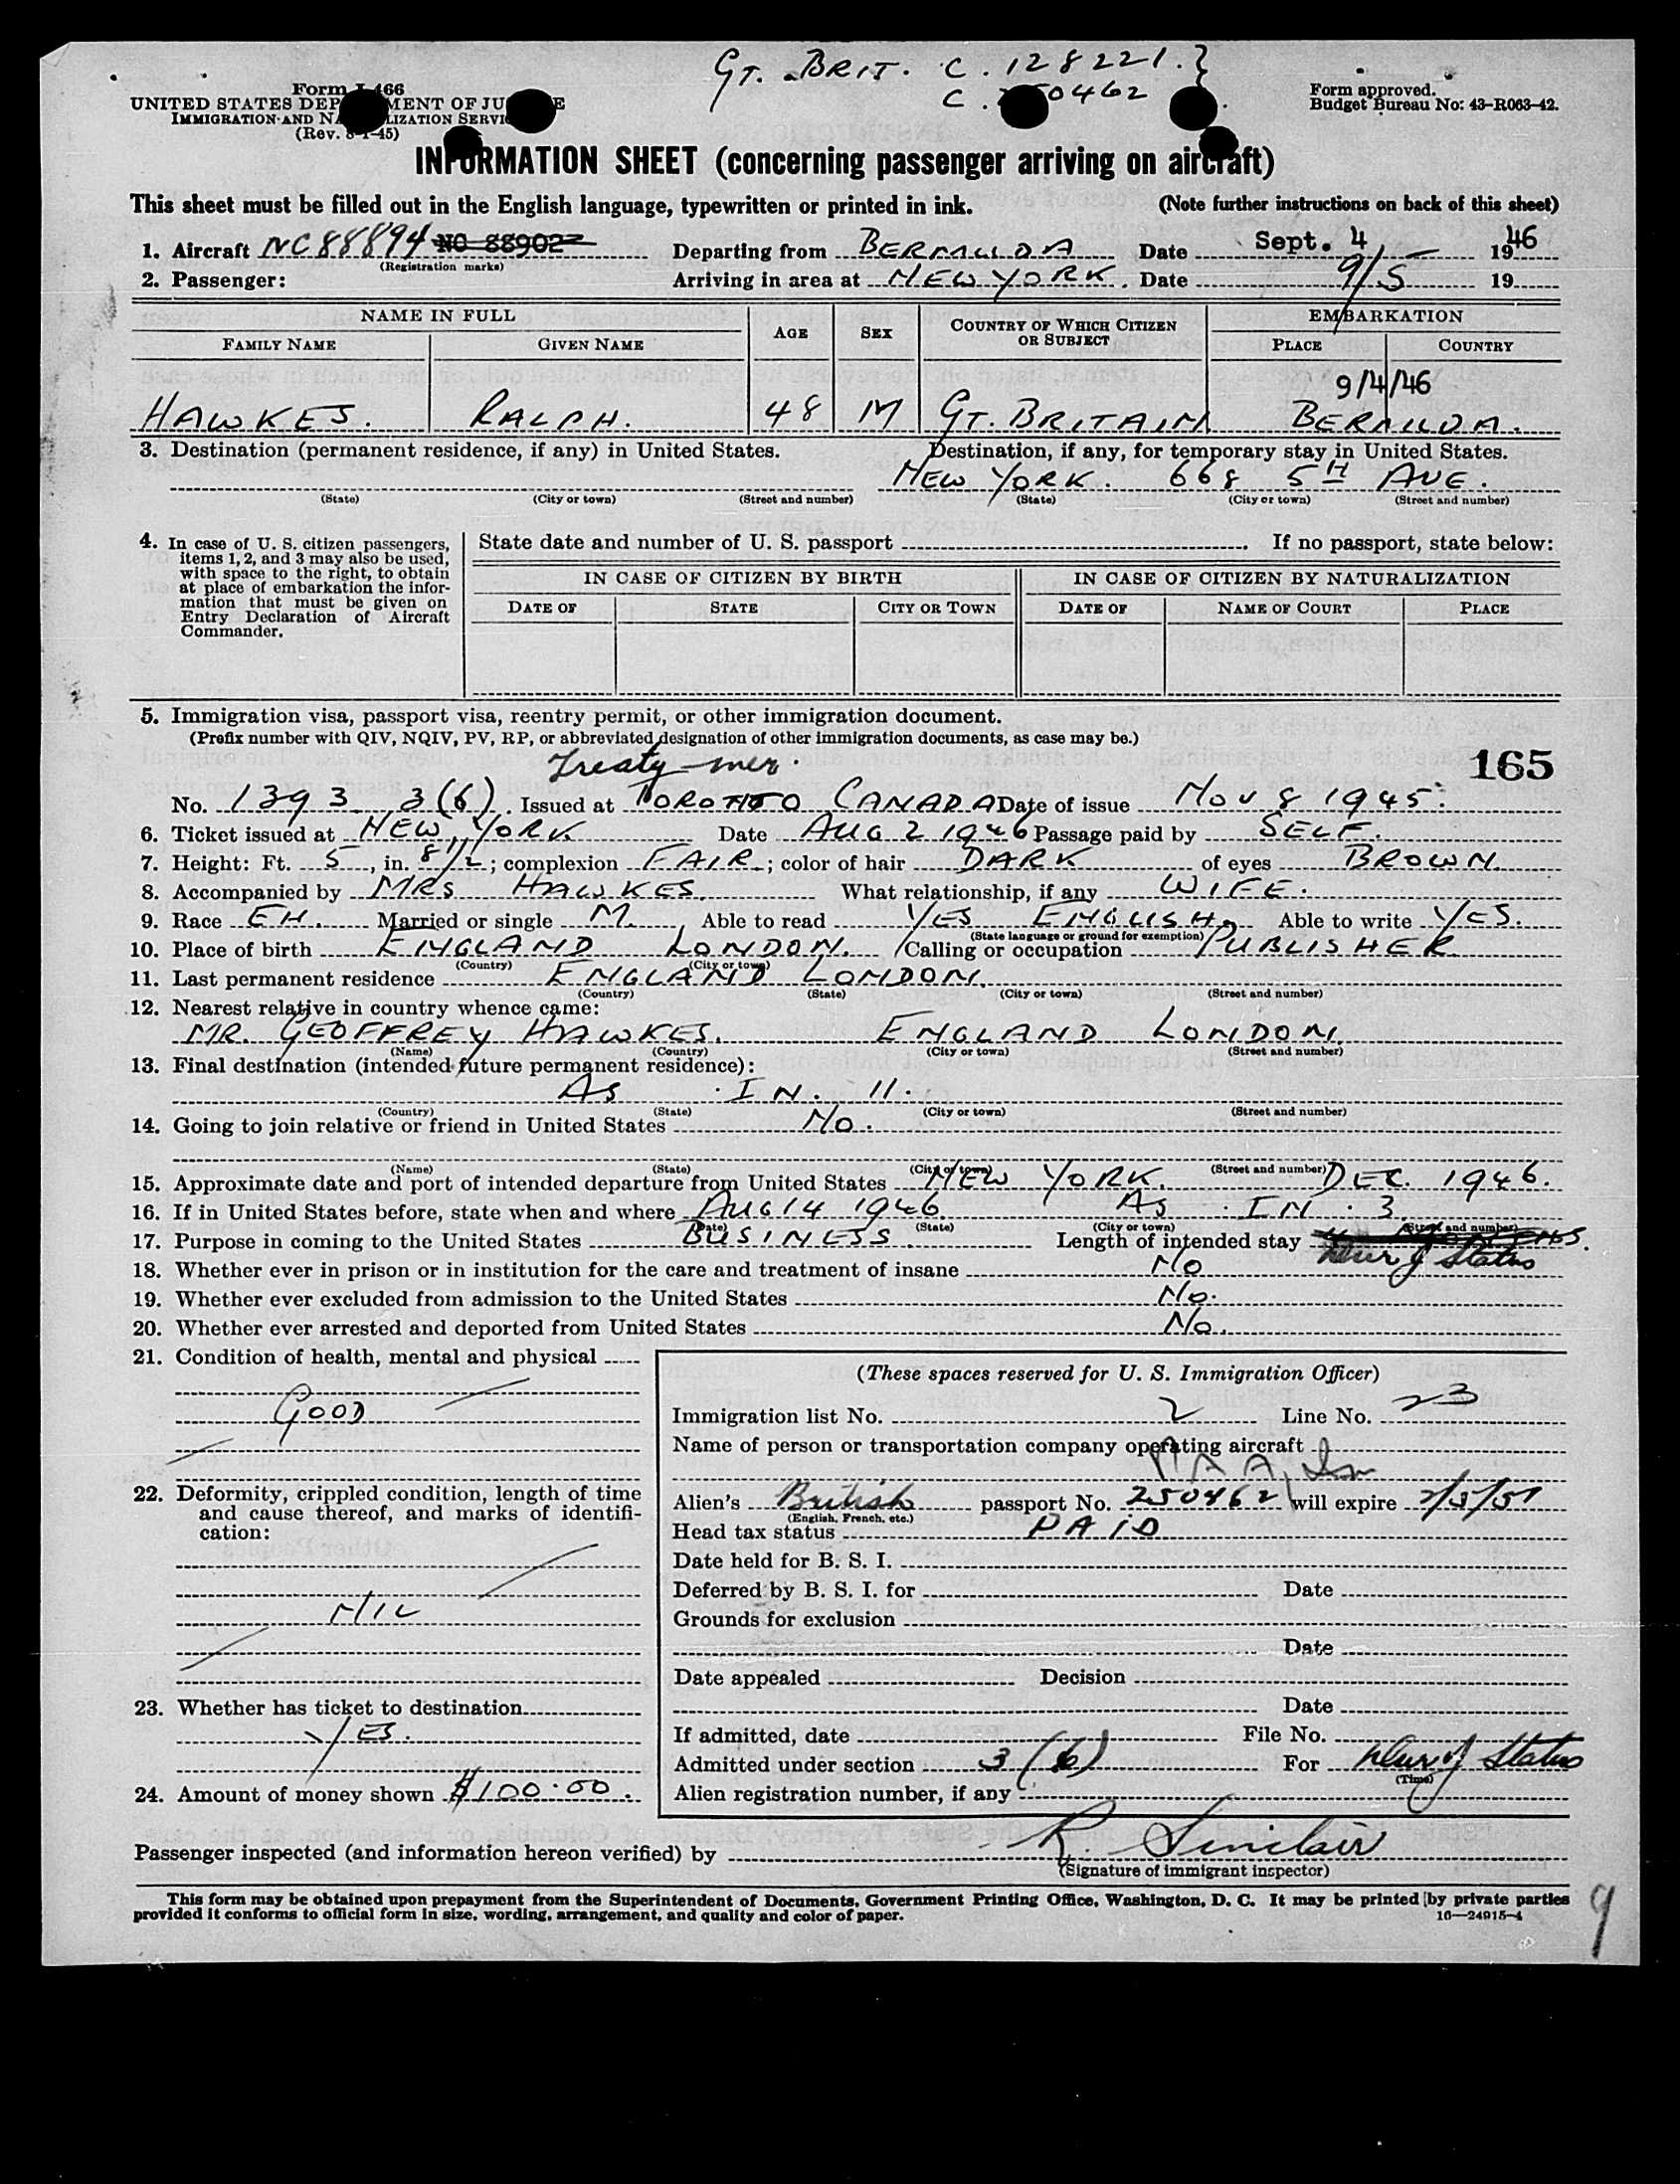 GT. BRIT. C. 128221.}
C. 0462
Form I-466
UNITED STATES DEP MENT OF JU E
IMMIGRATION AND NA LIZATION SERVI
(Rev. 8-1-45)
Form approved.
Budget Bureau No: 43-R063-42.
INFORMATION SHEET (concerning passenger arriving on aircraft)
This sheet must be filled out in the English language, typewritten or printed in ink. (Note further instructions on back of this sheet)
1. Aircraft NC88894 NC 88902 Departing from BERMUDA Date Sept. 4 1946
(Registration marks)
2. Passenger: Arriving in area at NEW YORK. Date 9/5 19
NAME IN FULL AGE SEX COUNTRY OF WHICH CITIZEN OR SUBJECT EMBARKATION
FAMILY NAME GIVEN NAME PLACE COUNTRY
9/4/46
HAWKES. RALPH. 48 M GT. BRITAIN BERMUDA.
3. Destination (permanent residence, if any) in United States. Destination, if any, for temporary stay in United States.
NEW YORK. 668 5TH AVE.
(State) (City or town) (Street and number) (State) (City or town) (Street and number)
4. In case of U. S. citizen passengers, items 1, 2, and 3 may also be used, with space to the right, to obtain at place of embarkation the information that must be given on Entry Declaration of Aircraft Commander.
State date and number of U. S. passport . If no passport, state below:
IN CASE OF CITIZEN BY BIRTH IN CASE OF CITIZEN BY NATURALIZATION
DATE OF STATE CITY OR TOWN DATE OF NAME OF COURT PLACE
5. Immigration visa, passport visa, reentry permit, or other immigration document.
(Prefix number with QIV, NQIV, PV, RP, or abbreviated designation of other immigration documents, as case may be.)
Treaty mer. 165
No. 1393 3(6). Issued at TORONTO CANADA Date of issue NOV 8 1945.
6. Ticket issued at NEW YORK Date AUG 2 1946 Passage paid by SELF.
7. Height: Ft. 5, in. 8 1/2; complexion FAIR; color of hair DARK of eyes BROWN
8. Accompanied by MRS HAWKES. What relationship, if any WIFE.
9. Race EH. Married or single M. Able to read YES ENGLISH. Able to write YES.
(State language or ground for exemption)
10. Place of birth ENGLAND LONDON. Calling or occupation PUBLISHER
(Country) (City or town)
11. Last permanent residence ENGLAND LONDON.
(Country) (State) (City or town) (Street and number)
12. Nearest relative in country whence came:
MR. GEOFFREY HAWKES. ENGLAND LONDON.
(Name) (Country) (City or town) (Street and number)
13. Final destination (intended future permanent residence):
AS IN. 11.
(Country) (State) (City or town) (Street and number)
14. Going to join relative or friend in United States No.
(Name) (State) (City or town) (Street and number)
15. Approximate date and port of intended departure from United States NEW YORK. DEC. 1946.
16. If in United States before, state when and where AUG 14 1946 AS IN. 3
(Date) (State) (City or town) (Street and number)
17. Purpose in coming to the United States BUSINESS. Length of intended stay
Dur of Status
18. Whether ever in prison or in institution for the care and treatment of insane No
19. Whether ever excluded from admission to the United States No.
20. Whether ever arrested and deported from United States No.
21. Condition of health, mental and physical
GOOD
22. Deformity, crippled condition, length of time and cause thereof, and marks of identification:
NIL
23. Whether has ticket to destination
YES.
24. Amount of money shown $100.00.
(These spaces reserved for U. S. Immigration Officer)
Immigration list No. 2 Line No. 23
Name of person or transportation company operating aircraft
PAA, In
Alien's British passport No. 250462 will expire 2/5/51
(English, French, etc.)
Head tax status PAID
Date held for B. S. I.
Deferred by B. S. I. for Date
Grounds for exclusion
Date
Date appealed Decision
Date
If admitted, date File No.
Admitted under section 3 (6) For Dur of Status
(Time)
Alien registration number, if any
Passenger inspected (and information hereon verified) by R. Sinclair
(Signature of immigrant inspector)
This form may be obtained upon prepayment from the Superintendent of Documents, Government Printing Office, Washington, D. C. It may be printed by private parties
provided it conforms to official form in size, wording, arrangement, and quality and color of paper. 16—24915-4
9